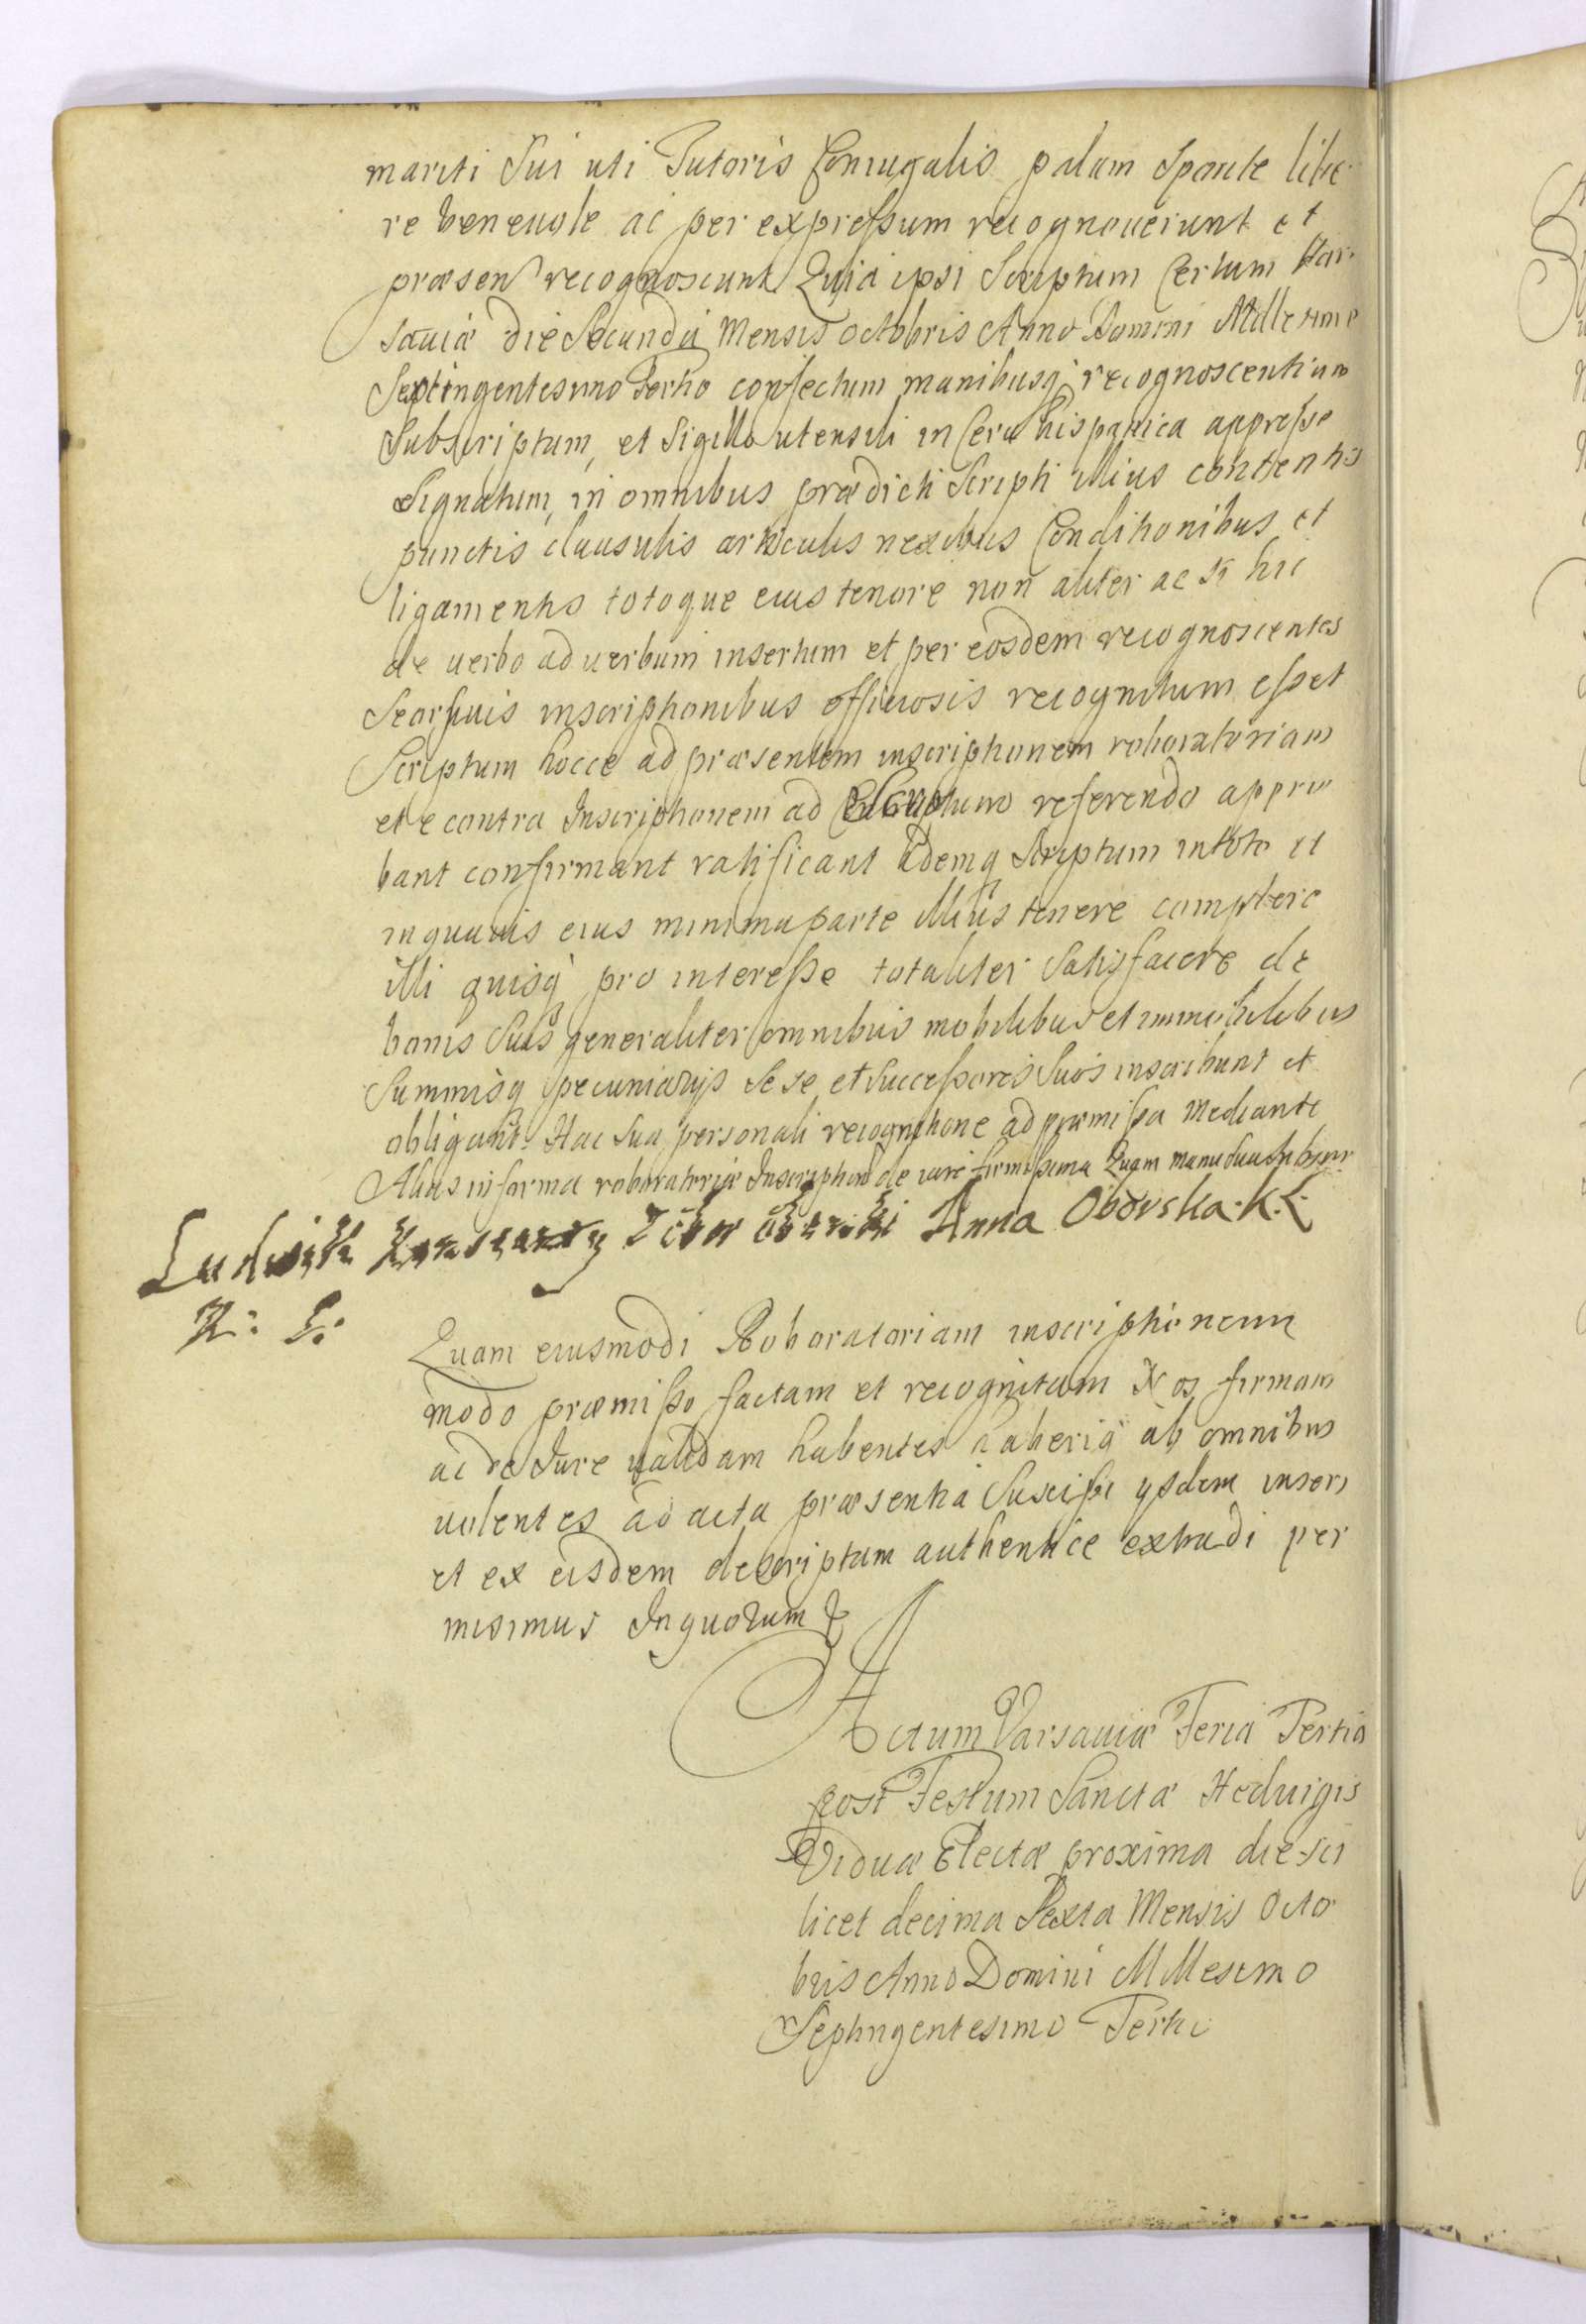 mariti Sui uti Tutoris Coniugalis palam Sponte libe
re beneuole ac per expressum recognouerunt et
præsen recognoscunt Quia ipsi Scriptum Certum Var
sauiæ die Secunda Mensis Octobris Anno Domini Millesimo
Septingentesimo Tertio confectum manibusq recognoscentium
Subscriptum, et Sigillo utensili in Cera hispanica appresse
Signatum, in omnibus prædicti Scripti illius contentis
punctis clausulis articulis nexibus Conditionibus et
ligamentis totoque eius tenore non aliter ac si hic
de uerbo ad uerbum insertum et per eosdem recognoscentes
Seorsiuis inscriptionibus officiosis recognitum esset
Scriptum hocce ad præsentem inscriptionem roboratoriam
et e contra Inscriptionem ad Scriptum referendo appro
bant confirmant ratificant Idemq Scriptum in toto et
inquauis eius minima parte illius tenere complere
illi quisq pro interesse totaliter Satisfacere de
bonis Suis generaliter omnibus mobilibus et immobilibus
Summisq pecuniarijs Se se et Successores Suos inscribunt et
obligant. Hac Sua personali recognitione ad præmissa Mediante
Alias in forma roboratoriæ Inscriptionis de iure firmissima Quam manu sua Subscr
Ludwik Anna Oborska. K. L.
K: L:
Quam eiusmodi Roboratoriam inscriptionem
modo præmisso factam et recognitam Nos firmam
ac de Iure ualidam habentes haberiq ab omnibus
uolentes ad acta præsentia Suscipi ijsdem inseri
et ex eisdem descriptum authentice extradi per
misimus In quorum &
Actum Varsauiæ Feria Tertia
post Festum Sanctæ Heduigis
Viduæ Electæ proxima die sci
licet decima Sexta Mensis Octo
bris Anno Domini Millesimo
Septingentesimo Tertio